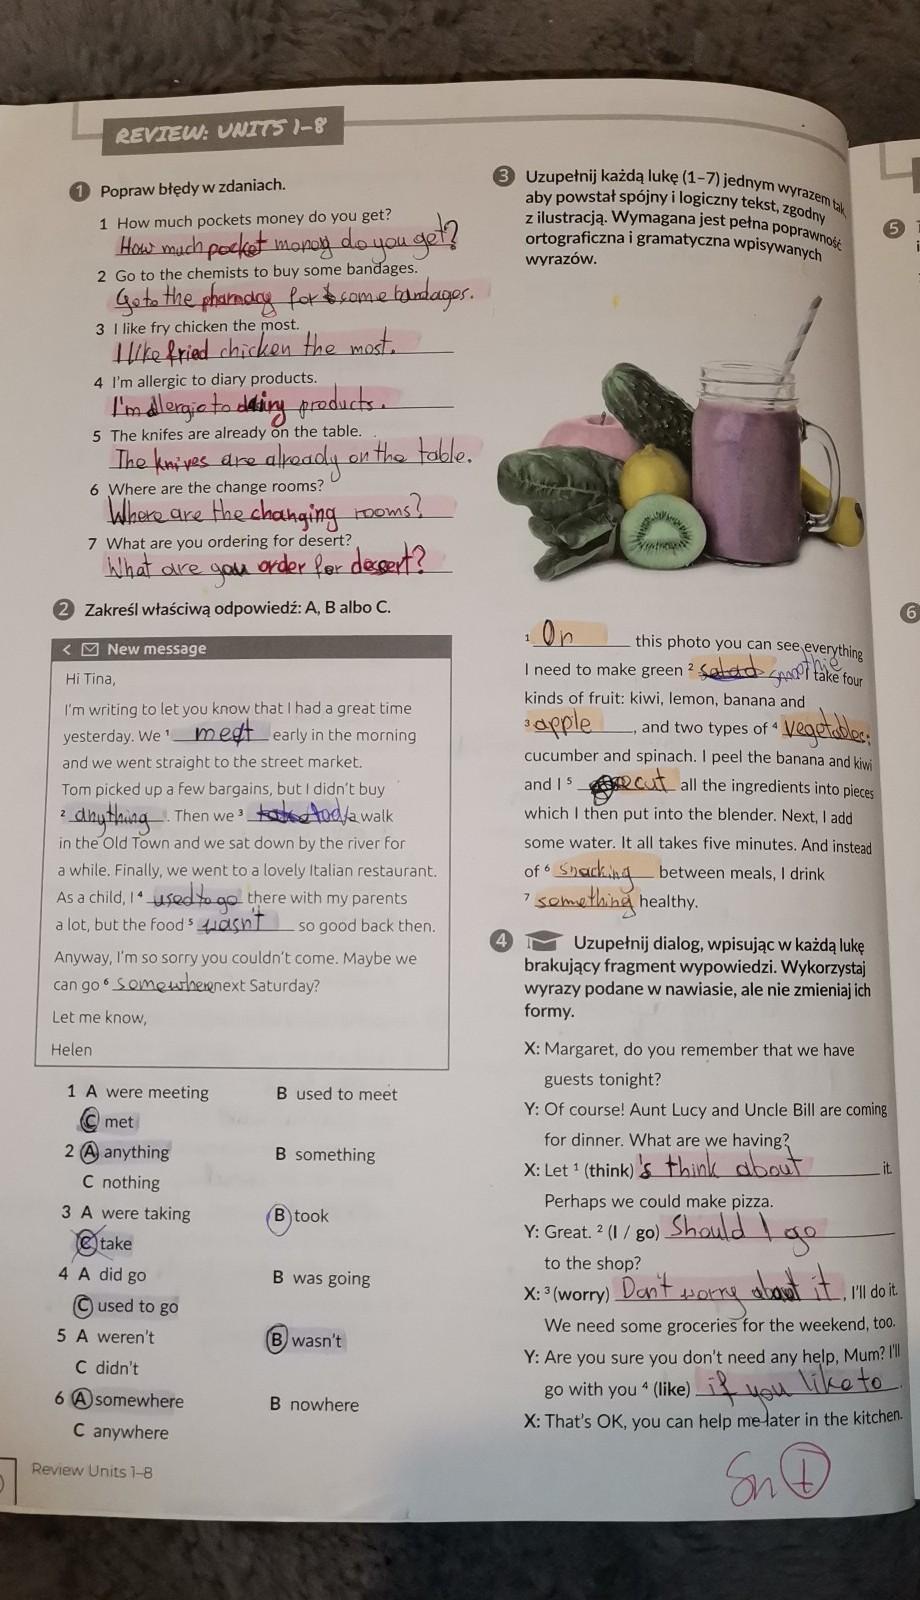 REVIEW: UNITS 1–8
1 Popraw błędy w zdaniach.
1 How much pockets money do you get?
How much pocket money do you get?
2 Go to the chemists to buy some bandages.
Go to the pharmacy for some bandages.
3 I like fry chicken the most.
I like fried chicken the most.
4 I'm allergic to diary products.
I'm allergic to dairy products.
5 The knifes are already on the table.
The knives are already on the table.
6 Where are the change rooms?
Where are the changing rooms?
7 What are you ordering for desert?
What are you order for dessert?
2 Zakreśl właściwą odpowiedź: A, B albo C.
< New message
Hi Tina,
I'm writing to let you know that I had a great time
yesterday. We 1 met early in the morning
and we went straight to the street market.
Tom picked up a few bargains, but I didn't buy
2 anything . Then we 3 took a walk
in the Old Town and we sat down by the river for
a while. Finally, we went to a lovely Italian restaurant.
As a child, I 4 used to go there with my parents
a lot, but the food 5 wasn't so good back then.
Anyway, I'm so sorry you couldn't come. Maybe we
can go 6 somewhere next Saturday?
Let me know,
Helen
1 A were meeting B used to meet
C met
2 A anything B something
C nothing
3 A were taking B took
C take
4 A did go B was going
C used to go
5 A weren't B wasn't
C didn't
6 A somewhere B nowhere
C anywhere
Review Units 1–8
3 Uzupełnij każdą lukę (1–7) jednym wyrazem tak,
aby powstał spójny i logiczny tekst, zgodny
z ilustracją. Wymagana jest pełna poprawność
ortograficzna i gramatyczna wpisywanych
wyrazów.
1 On this photo you can see everything
I need to make green 2 salad smoothie I take four
kinds of fruit: kiwi, lemon, banana and
3 apple , and two types of 4 vegetables:
cucumber and spinach. I peel the banana and kiwi
and I 5 cut all the ingredients into pieces
which I then put into the blender. Next, I add
some water. It all takes five minutes. And instead
of 6 snacking between meals, I drink
7 something healthy.
4 Uzupełnij dialog, wpisując w każdą lukę
brakujący fragment wypowiedzi. Wykorzystaj
wyrazy podane w nawiasie, ale nie zmieniaj ich
formy.
X: Margaret, do you remember that we have
guests tonight?
Y: Of course! Aunt Lucy and Uncle Bill are coming
for dinner. What are we having?
X: Let 1 (think) 's think about it.
Perhaps we could make pizza.
Y: Great. 2 (I / go) Should I go
to the shop?
X: 3 (worry) Don't worry about it , I'll do it.
We need some groceries for the weekend, too.
Y: Are you sure you don't need any help, Mum? I'll
go with you 4 (like) if you like to .
X: That's OK, you can help me later in the kitchen.
5
6